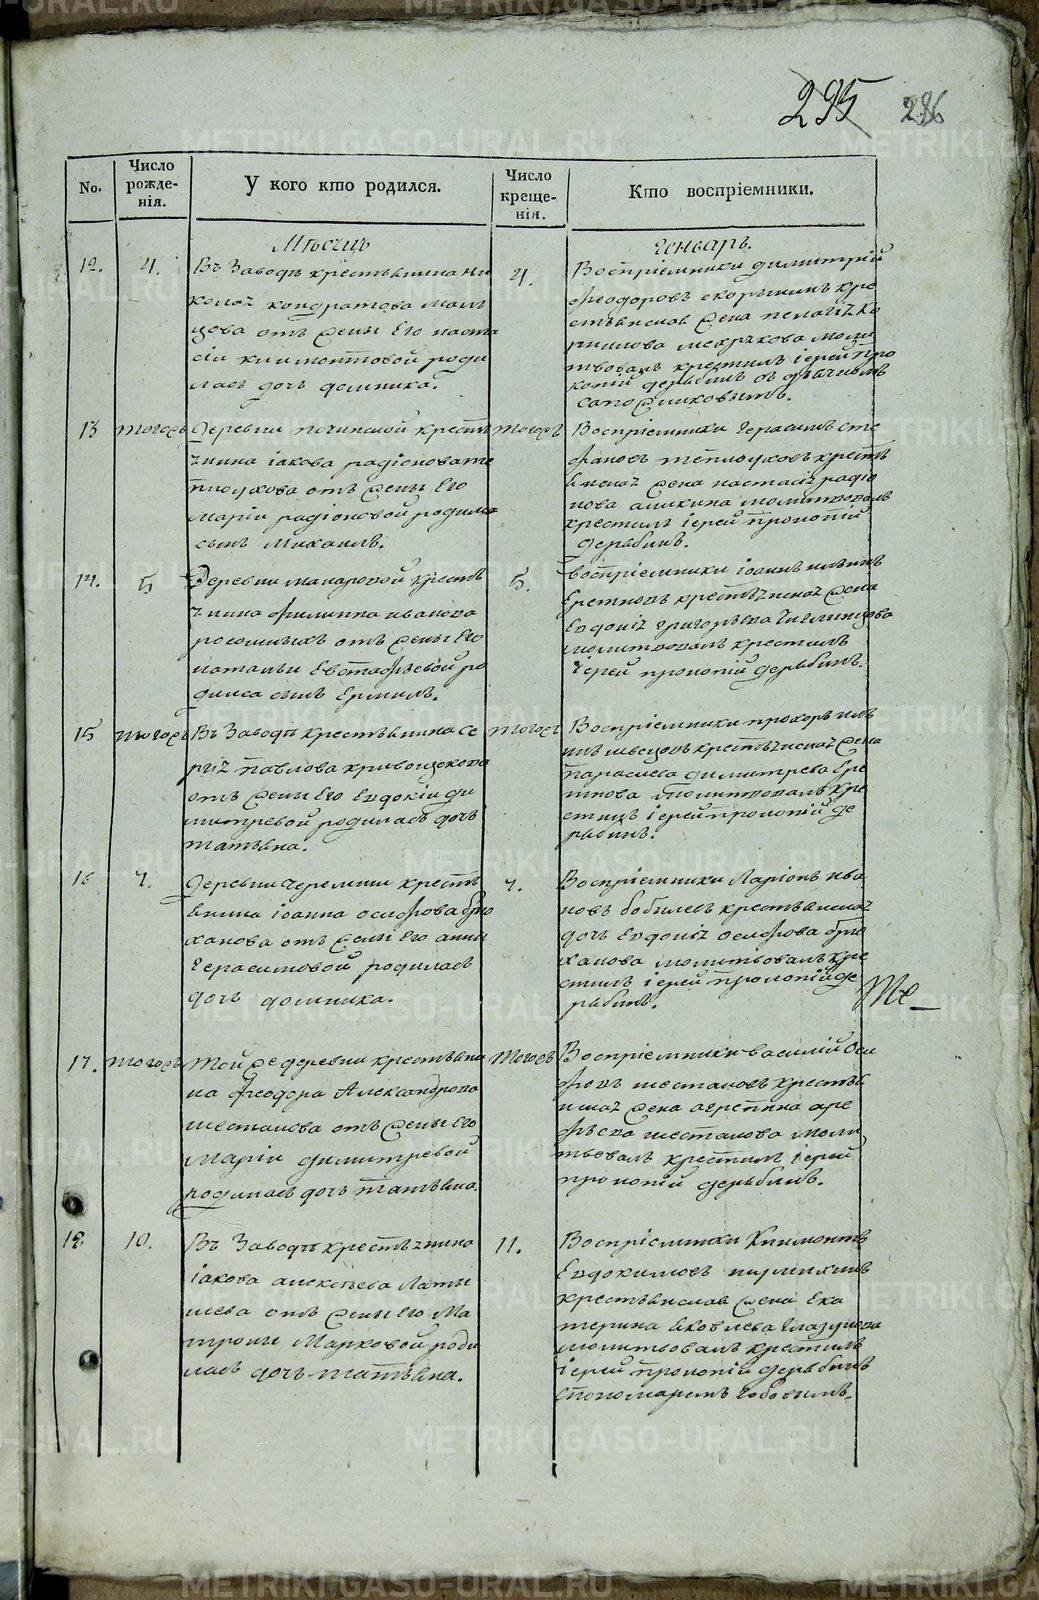 295 286
No.
Число рожде-нія.
У кого кто родился.
Число креще-нія.
Кто воспріемники.
Мѣсяць
Генварь.
12. 4.
Въ Заводѣ крестьянина Ни
колая кондратова
цова отъ жены Его наста
сіи климонтовой роди
лась дочь домника.
4.
Воспріемники димитрій
феодоровъ скорынинъ кре
стьянская жена пелагія
молит
вовалъ крестилъ іерей про
копій дерябинъ съ дьячкомъ
сапожниковымъ.
13 тогожъ
деревни починской крестья
нина іакова радіонова те
плоухова отъ жены Его
маріи радіоновой родился
сынъ михаилъ.
тогожъ
Воспріемники Герасимъ сте
фановъ теплоуховъ крестья
нская жена настасія радіо
нова аликина молитвовалъ
крестилъ іерей прокопій
дерябинъ.
14. 5
Деревни макаровой крестья
нина филиппа иванова
отъ жены Его
натальи Евстафьевой ро
дился сынъ Ермилъ.
5.
воспріемники іоаннъ
крестьянская жена
Евдокія григорьева
молитвовалъ крестилъ
іерей прокопій дерябинъ.
15 тогожъ
Въ Заводѣ крестьянина Се
ргія павлова кривощокова
отъ жены Его Евдокіи ди
митревой родилась дочь
татьяна.
тогожъ
Воспріемники прохоръ иль
инъ швецовъ крестьянская жена
парасковья димитрева
молитвовалъ кре
стилъ іерей прокопій де
рябинъ.
16 7.
деревни черемиши кресть
янина іоанна осифова брю
ханова отъ жены Его анны
Герасимовой родилась
дочь домника.
7.
Воспріемники Ларіонъ ива
новъ бобылевъ крестьянская
дочь Евдокія осифова брю
ханова молитвовалъ кре
стилъ іерей прокопій де
рябинъ.
17. тогожъ
той же деревни крестьяни
на Феодора Александрова
шестакова отъ жены Его
маріи димитревой
родилась дочь татьяна.
тогожъ
Воспріемники василій оси
фовъ шестаковъ крестья
нская жена агрепина аре
фьева шестакова моли
твовалъ крестилъ іерей
прокопій дерябинъ.
18 10.
Въ Заводѣ крестьянина
іакова алексѣева Латы
шева отъ жены Его Ма
троны Марковой роди
лась дочь татьяна.
11.
Воспріемники Климонтъ
Евдокимовъ пермяковъ
крестьянская жена Ека
терина яковлева глазунова
молитвовалъ крестилъ
іерей прокопій дерябинъ